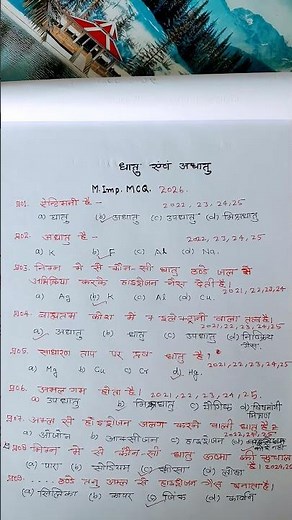 धातु एवं अधातु
M.Imp. MCQ. 2026.
प्र01. ऐन्टिमनी है - 2022, 23, 24, 25
a) धातु (b) अधातु (c) उपधातु (d) मिश्रधातु
प्र02. अधातु है - 2022, 23, 24, 25
a) K b) F (c) Al (d) Na.
प्र03. निम्न में से कौन सी धातु ठण्डे जल से
अभिक्रिया करके हाइड्रोजन गैस देती है। 2021, 22, 23, 24
a) Ag (b) K (c) Al (d) Cu.
प्र04. बाह्यतम कोश में 7 इलेक्ट्रानों वाला तत्व है।
2021, 22, 23, 24, 25
a) अधातु (b) धातु (c) उपधातु (d) निष्क्रिय गैस.
प्र05. साधारण ताप पर द्रव धातु है।
2021, 22, 23, 24, 25
a) Mg b) Cu c) Cr d) Hg.
प्र06. अमलगम होता है। 2021, 22, 23, 24, 25.
a) उपधातु b) मिश्रधातु c) यौगिक d) मिश्रण
प्र07. अम्ल से हाइड्रोजन अलग करने वाली धातु है?
2022, 24, 25
a) ओजोन b) आक्सीजन c) हाइड्रोजन d) कोई नहीं
प्र08 निम्न में से कौन-सी धातु ऊष्मा की कुचालक है। 2024, 25
(a) पारा (b) सोडियम (c) सीसा (d) लोहा
प्र09. ..... ठंडे तनु अम्ल से हाइड्रोजन गैस बनाता है।
(a) सिल्विर (b) कापर (c) जिंक (d) कार्बन